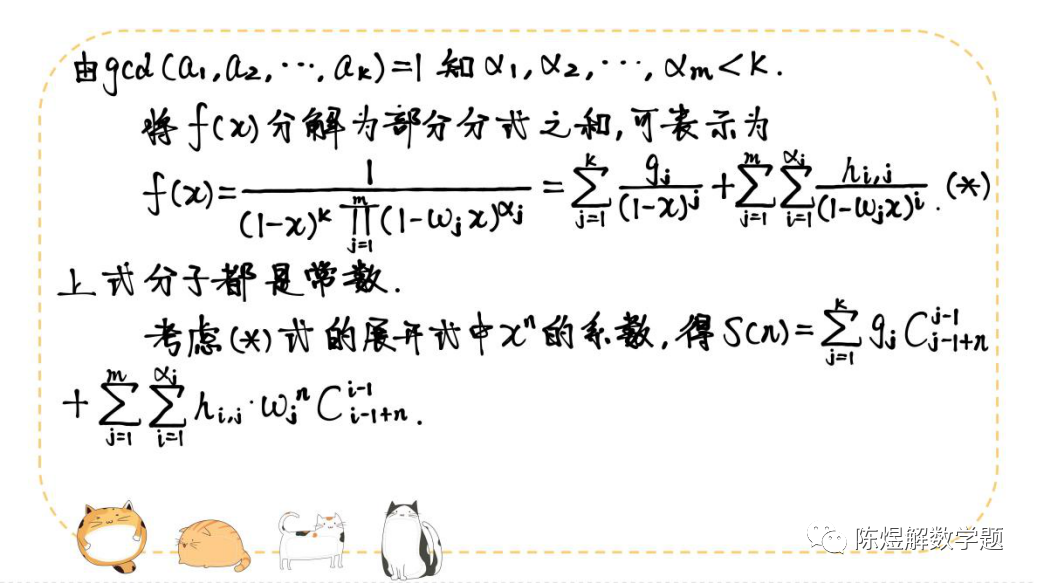 由gcd(a₁,a₂,⋯,aₖ)=1知α₁,α₂,⋯,αₘ<k.
将f(x)分解为部分分式之和,可表示为
f(x)=\frac{1}{(1-x)^k \prod_{j=1}^{m}(1-ω_j x)^{α_j}}=\sum_{j=1}^{k}\frac{g_j}{(1-x)^j}+\sum_{j=1}^{m}\sum_{i=1}^{α_j}\frac{h_{i,j}}{(1-ω_j x)^i}.(*)
上式分子都是常数.
考虑(*)式的展开式中xⁿ的系数,得S(n)=\sum_{j=1}^{k} g_j C_{j-1+n}^{j-1}
+\sum_{j=1}^{m}\sum_{i=1}^{α_j} h_{i,j}·ω_j^n C_{i-1+n}^{i-1}.
陈煜解数学题